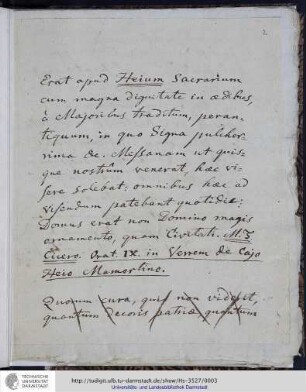 2
Erat apud Heium Sacrarium
cum magna dignitate in ædibus,
à Majoribus traditum, peran-
tiquum, in quo signa pulcher-
rima &c. Messanam ut quis-
que nostrûm venerat, hæc vi-
sere solebat: omnibus hæc ad
visendum patebant quotidie:
Domus erat non Domino magis
ornamento, quam Civitati. M. T.
Cicero. Orat. IX. in Verrem de Cajo
Heio Mamertino.
Quorum cura, quis non videt,
quantum decoris patriæ quantum
TECHNISCHE
UNIVERSITÄT
DARMSTADT
http://tudigit.ulb.tu-darmstadt.de/show/Hs-3527/0003
Universitäts- und Landesbibliothek Darmstadt